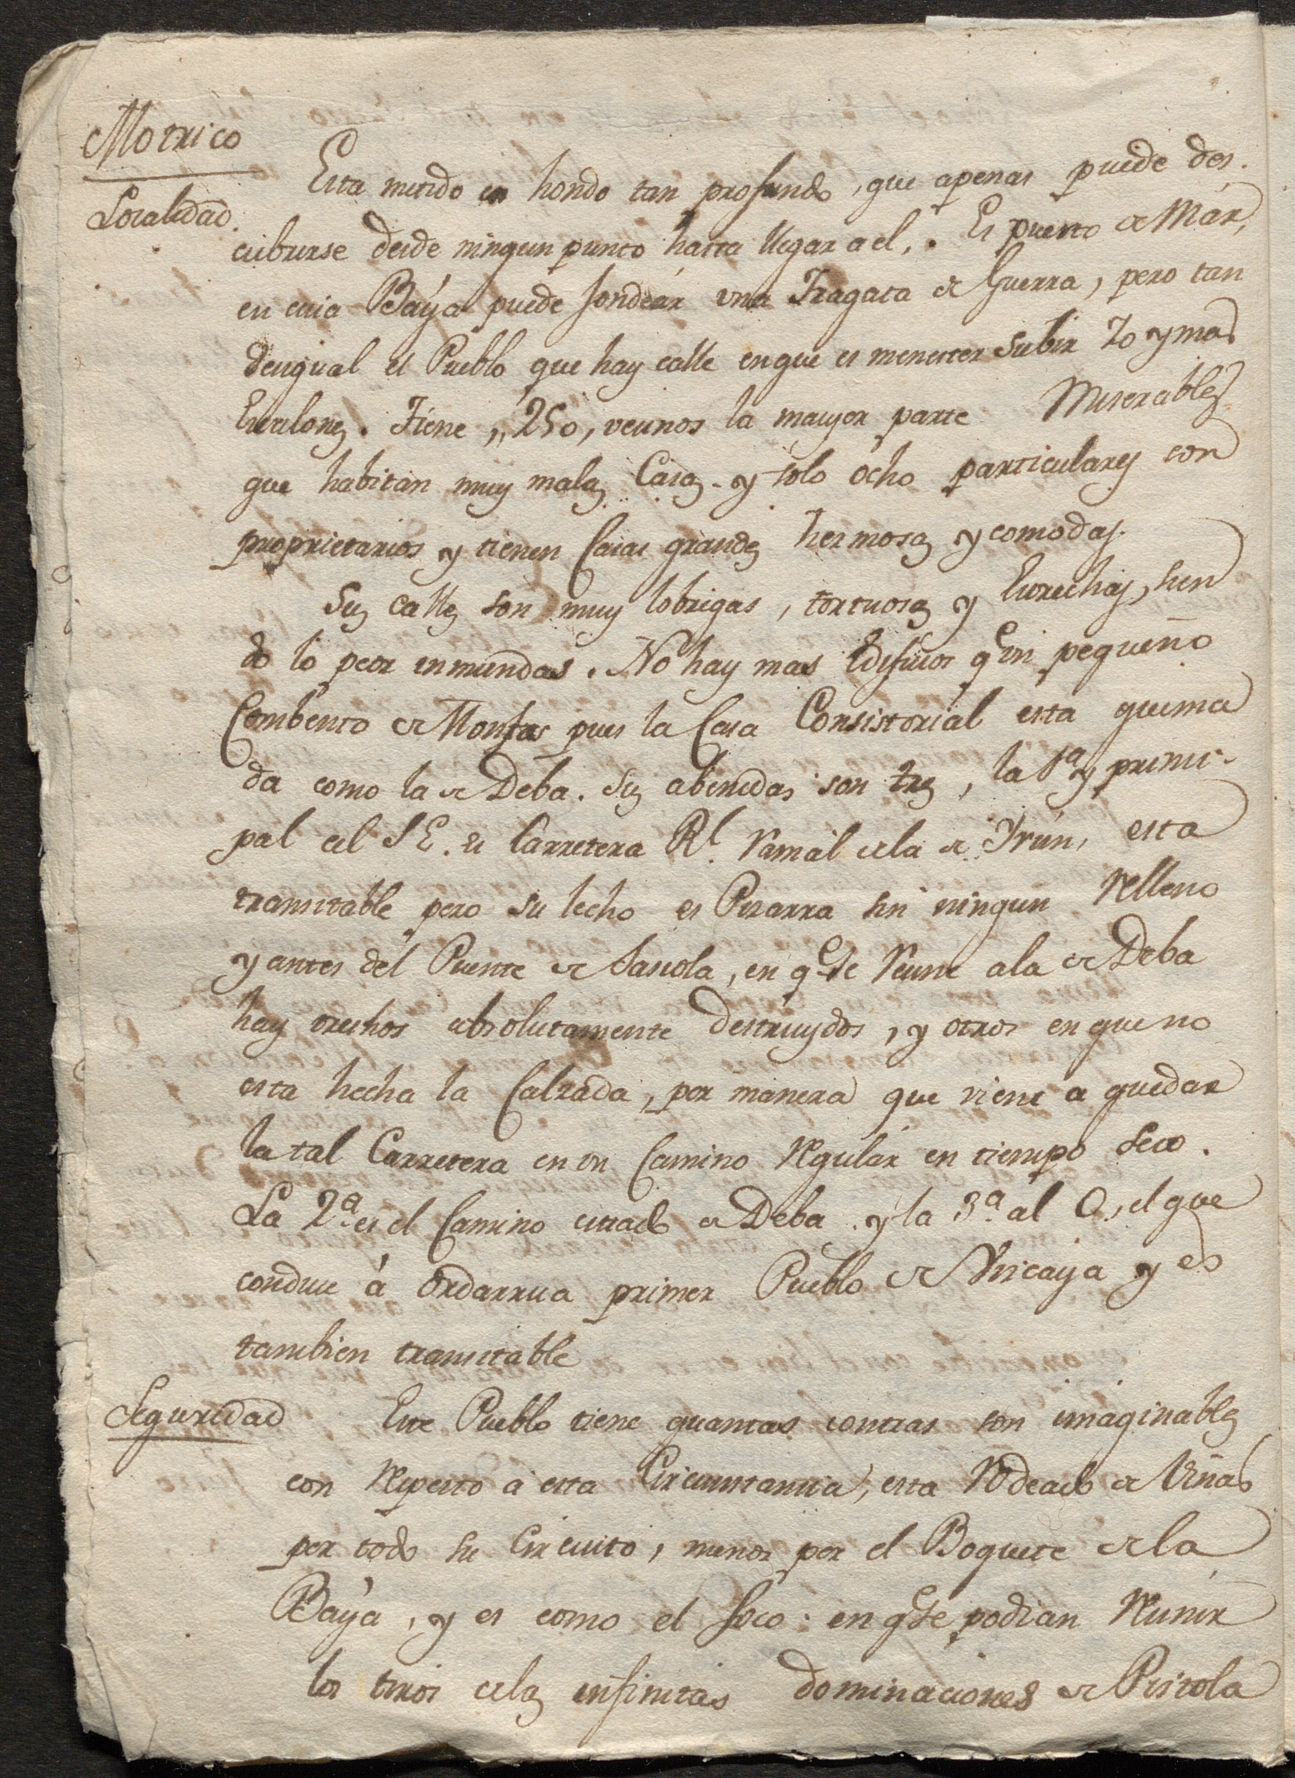 Motrico
Localidad.
Esta metido en hondo tan profundo, que apenas puede des-
cubrirse desde ningun punto hasta llegar a el,. Es puerto de Mar,
en cuia Baÿa puede fondear una Fragata de Guerra, pero tan
desigual el Pueblo que hay calle en que es menester subir 70 y mas
Escalones. Tiene ,,250, vecinos la mayor parte Miserables
que habitan muy malas Casas y solo ôcho particulares son
proprietarios y tienen Casas grandes hermosas y comodas.
Sus calles son muy lobregas, tortuosas y Estrechas, sien
do lo peor inmundas. No hay mas Edificios q.e un pequeño
Combento de Monjas pues la Casa Consistorial esta quema
da como la de Deba. Sus abenidas son tres, la 1.a y princi-
pal al S E. es Carretera R.l Ramal de la de Yrún, esta
transitable pero su lecho es Pizarra sin ningun Relleno
y antes del Puente de Sasiola, en q.e se Reune a la de Deba
hay trechos absolutamente destruydos, y otros en que no
esta hecha la Calzada, por manera que viene a quedar
la tal Carretera en un Camino Regular en tiempo seco.
La 2.a es el Camino citado de Deba y la 3.a al O, el que
conduce á Ordarrua primer Pueblo de Vizcaya y es
tambien transitable
Seguridad
Este Pueblo tiene quantas contras son imáginables
con Respecto a esta Circunstancia, esta Rodeado de Viñas
por todo su Circuito, menos por el Boquete de la
Baÿa, y es como el foco: en q.e se podian Reunir
los tiros de las infinitas dominaciones de Pistola